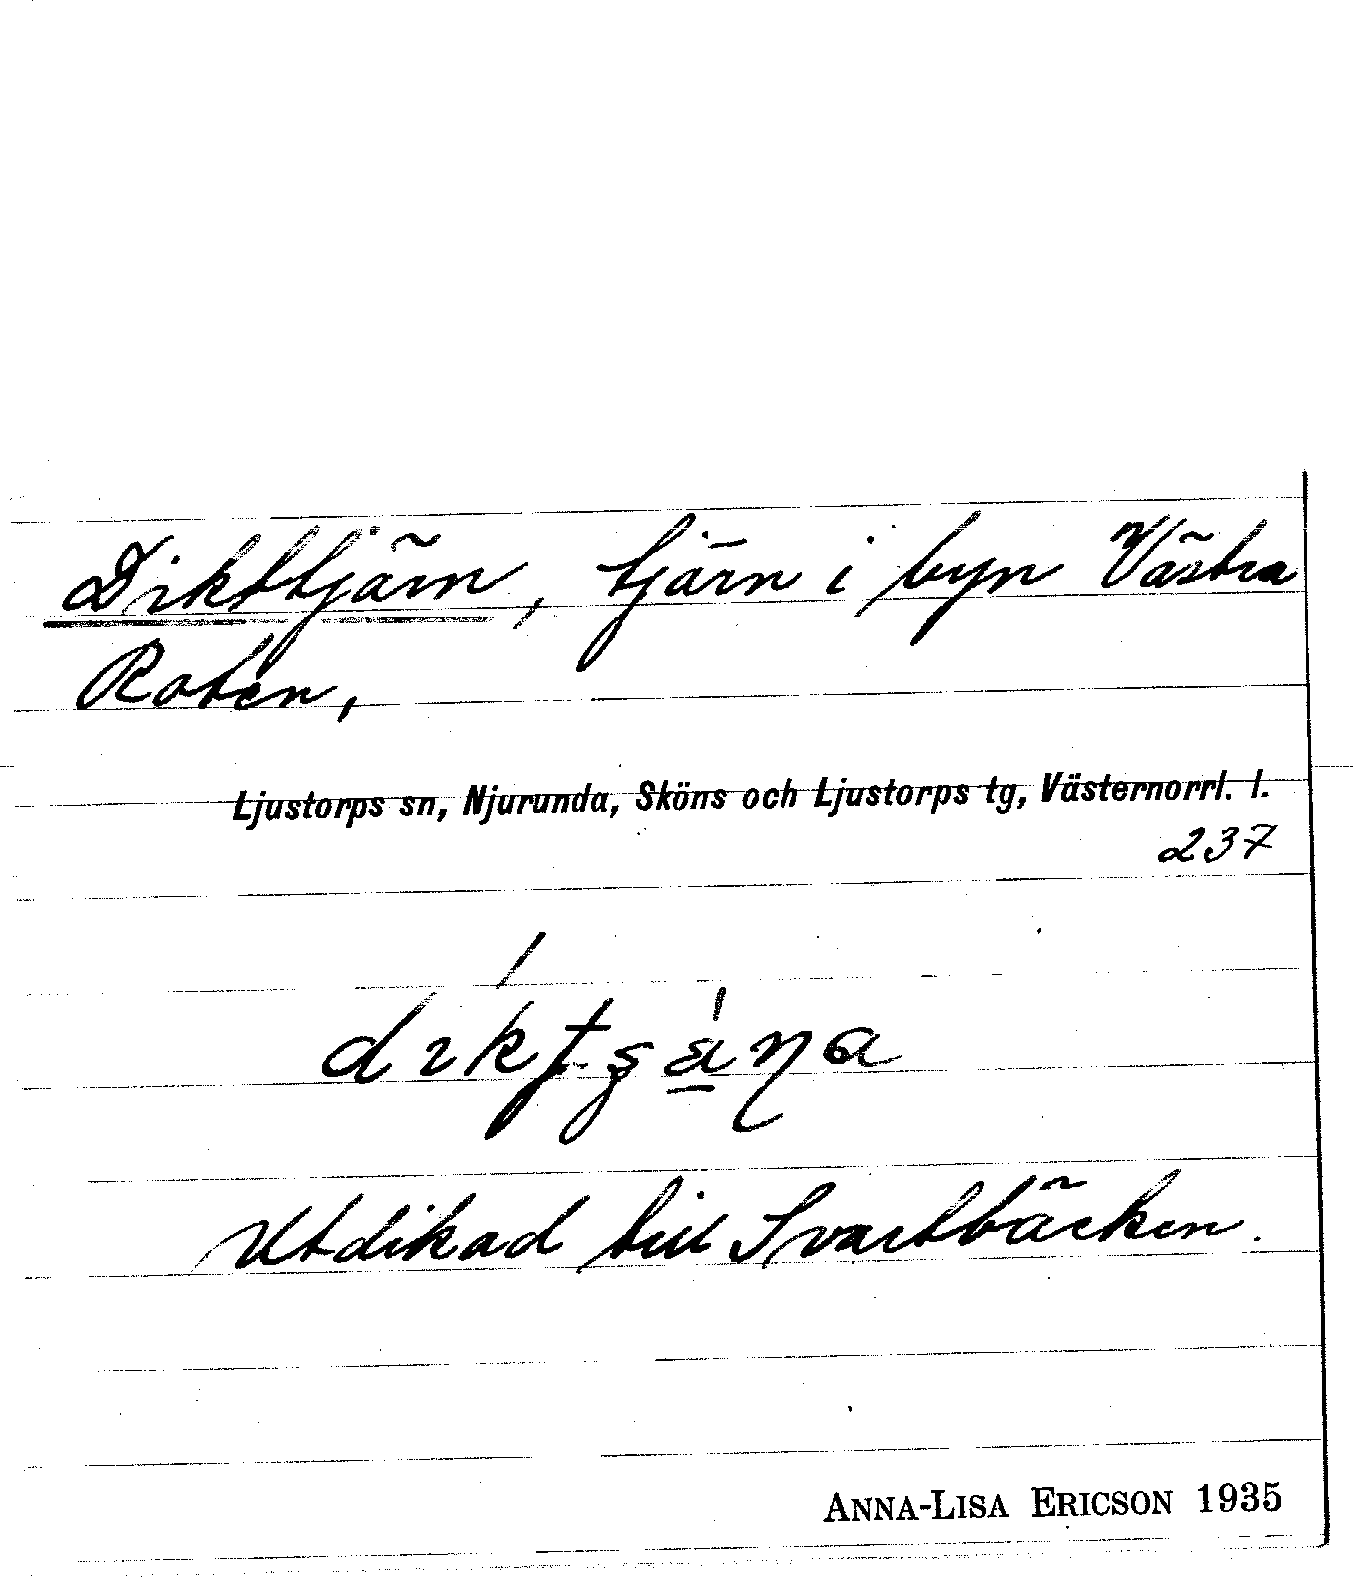 Dikttjärn, tjärn i byn Västra
Roten,
Ljustorps sn, Njurunda, Sköns och Ljustorps tg, Västernorrl. l.
237
Utdikad till Svartbäcken.
ANNA-LISA ERICSON 1935